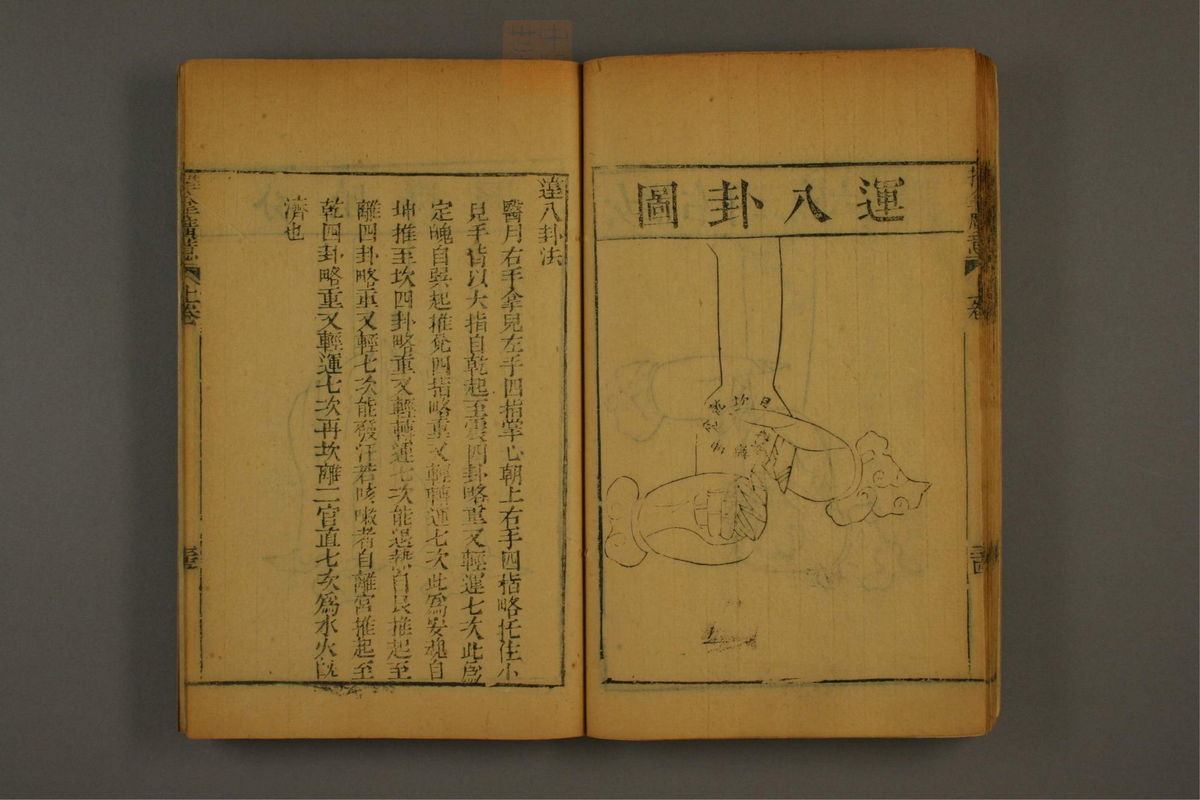 運八卦圖
坎
艮
運八卦法
醫用右手拿兒左手四指掌心朝上右手四指略托住小
兒手背以大指自乾起至震四卦略重又輕運七次此為
定魄自巽起推兌四指略重又輕轉運七次此為安魂自
坤推至坎四卦略重又輕轉運七次能退熱自艮推起至
離四卦略重又輕七次能發汗若咳嗽者自離宮推起至
乾四卦略重又輕運七次再坎離二宮直七次為水火既
濟也
上卷